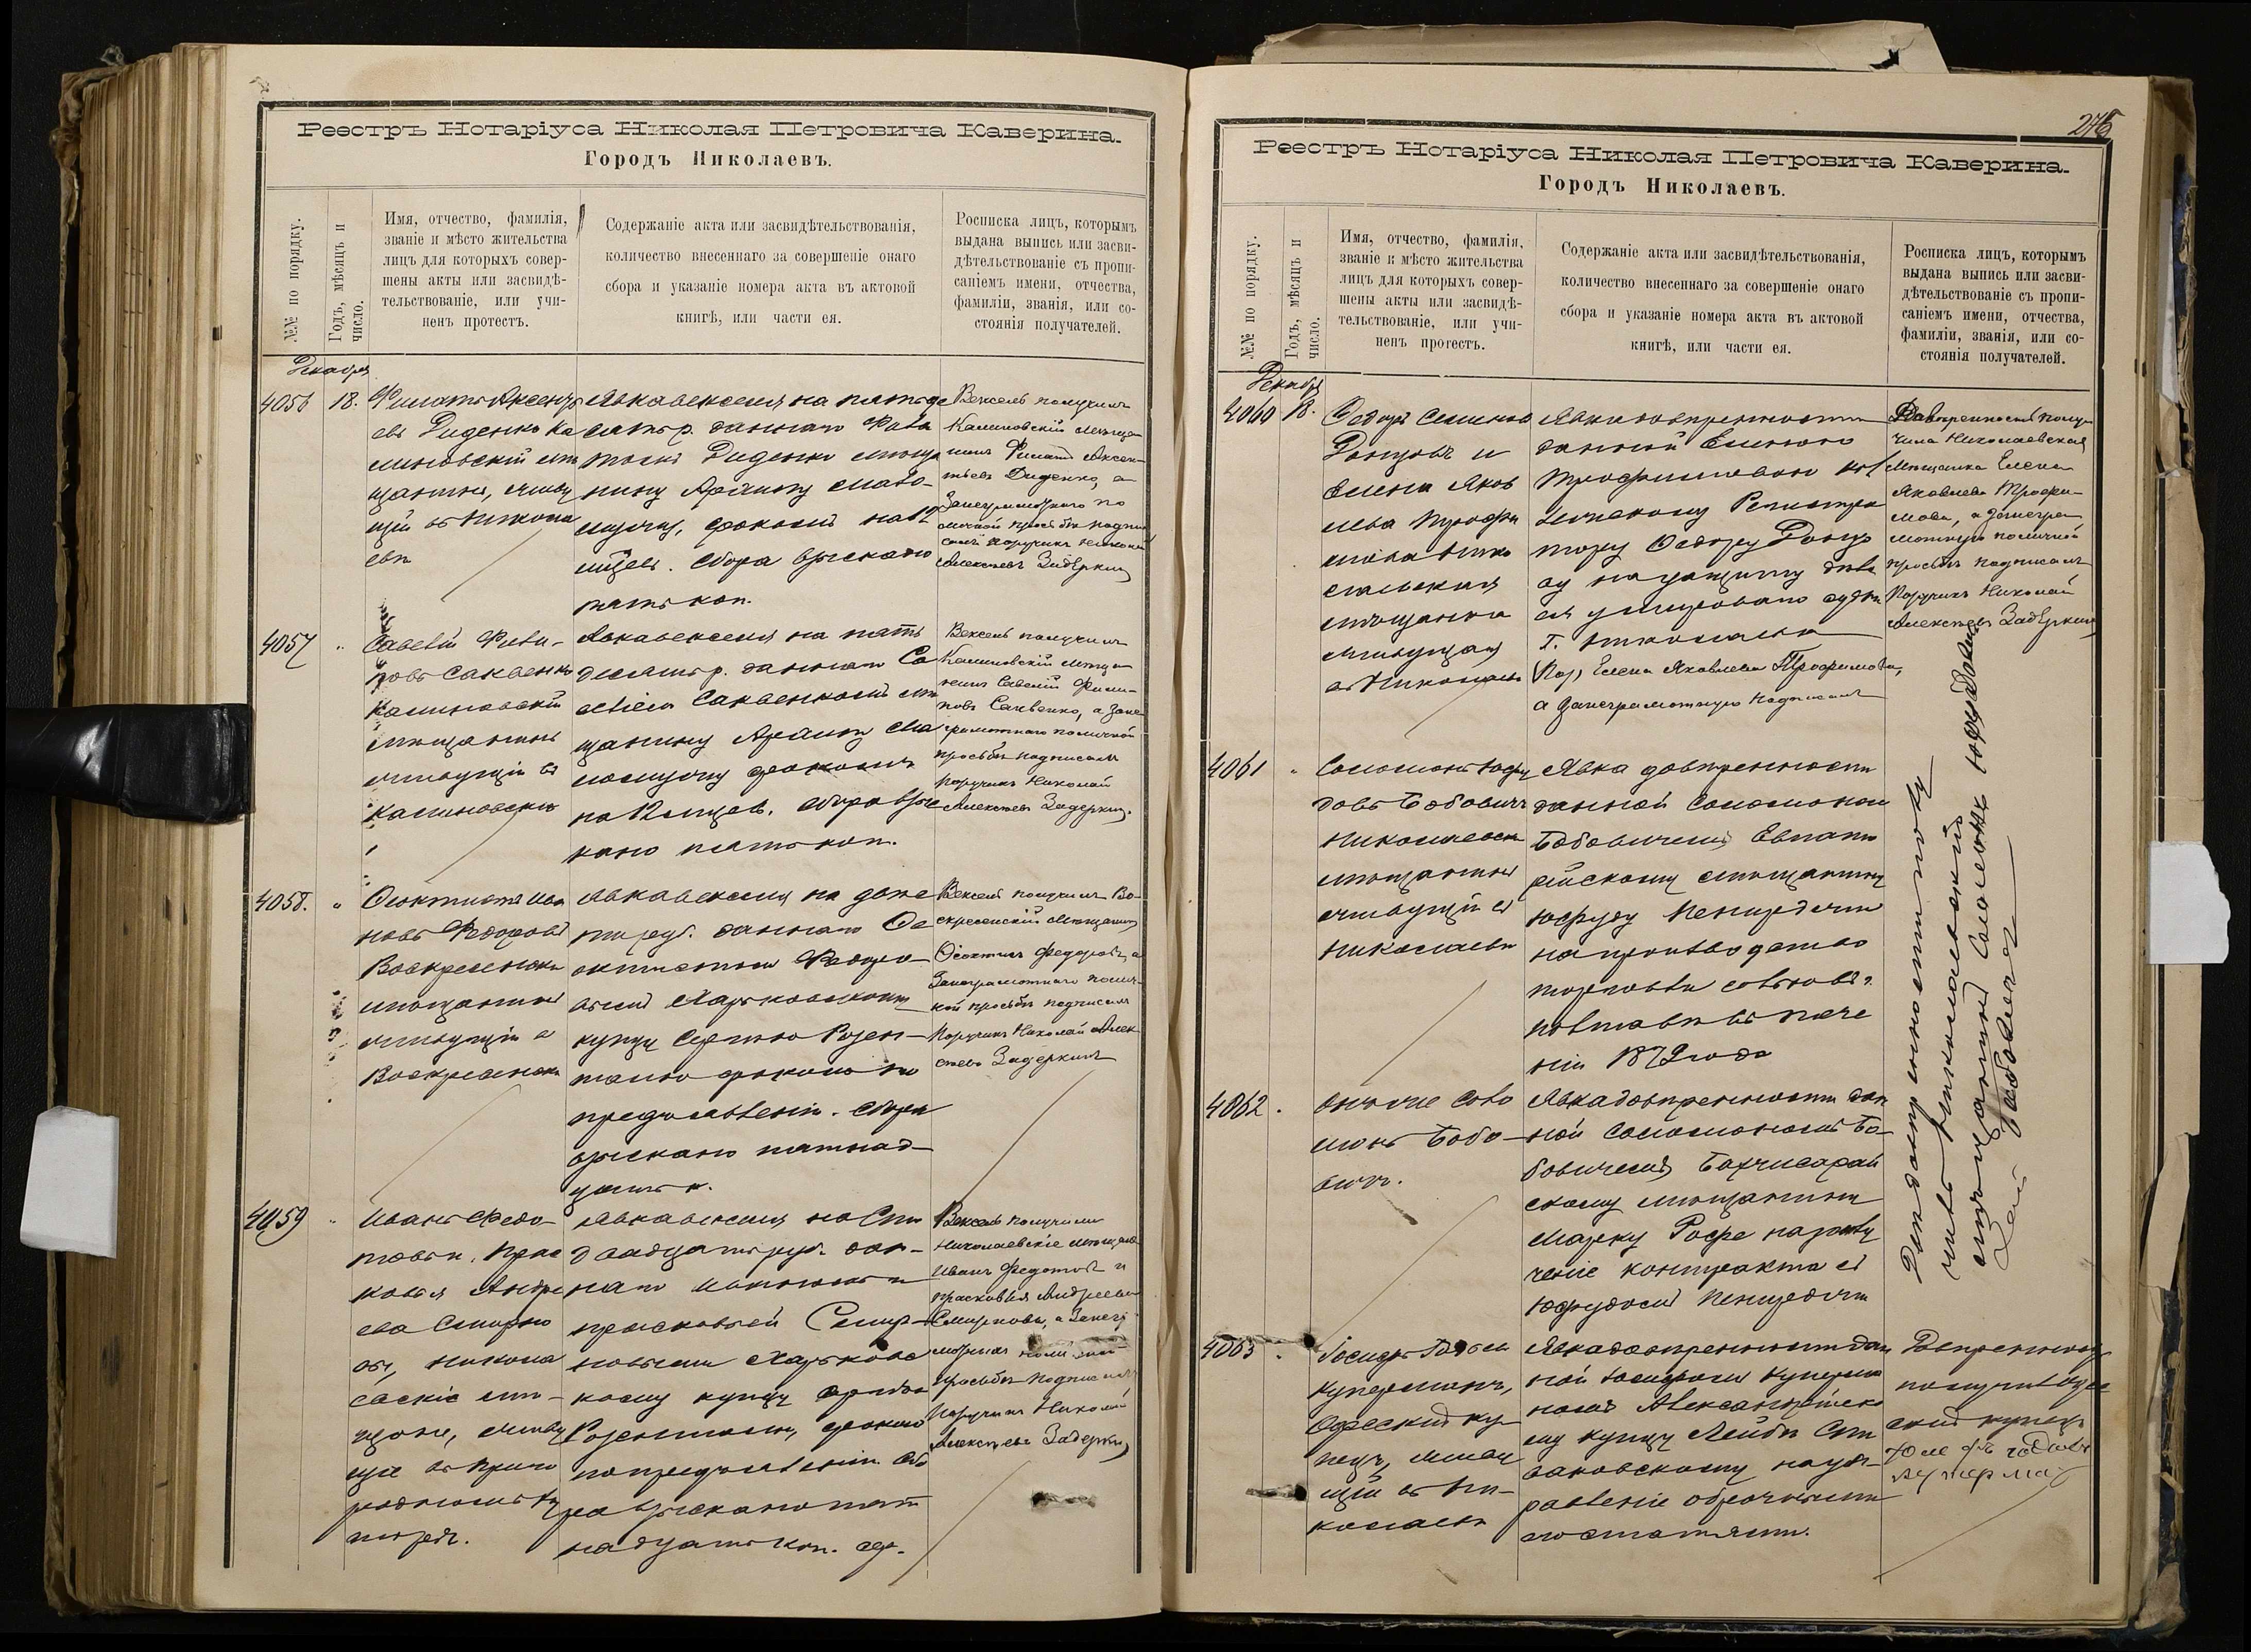 Реестръ Нотаріуса Николая Петровича Каверина.
Городъ Николаевъ.
№№ по порядку.
Годъ, мѣсяцъ и
число.
Имя, отчество, фамилія,
званіе и мѣсто жительства
лицъ для которыхъ совер-
шены акты или засвидѣ-
тельствованіе, или учи-
ненъ протестъ.
Содержаніе акта или засвидѣтельствованія,
количество внесеннаго за совершеніе онаго
сбора и указаніе номера акта въ актовой
книгѣ, или части ея.
Росписка лицъ, которымъ
выдана выпись или засви-
дѣтельствованіе съ пропи-
саніемъ имени, отчества,
фамиліи, званія, или со-
стоянія получателей.
Декабря
4056
18.
Филатъ Аксентъ
евъ Диденко Ка
линовскій мѣ
щанинъ, живу
щій въ Никола
евѣ
Явка векселя на пятьде
сятъ р. даннаго
Диденко мѣща
нину
срокомъ на 12
мѣсяц. Сбора взыскано
пять коп.
Вексель получилъ
Калиновскій мѣща
нинъ Филатъ Аксен-
тьевъ Диденко, а
Занеграмотнаго по
личной просьбѣ подпи
салъ Поручикъ Николай
Алексѣевъ Задеркинъ
4057
"
Савелій Фили-
повъ Саквенко
Калиновскій
мѣщанинъ
живущій въ
Калиновкѣ
Явка векселя на пять
десятъ р. даннаго Са
веліемъ Саквенкомъ мѣ
щанину
срокомъ
на 12 мѣсяцев. Сбора взыс
кано пять коп.
Вексель получилъ
Калиновскій мѣща
нинъ Савелій Фили-
повъ Саквенко, а Зане
грамотнаго по личной
просьбѣ подписалъ
Поручикъ Николай
Алексѣевъ Задеркинъ.
4058.
"
Феоктистъ Ива
новъ Федоровъ
Воскресенскій
мѣщанинъ
живущій въ
Воскресенскѣ
Явка векселя на двѣс
ти руб. даннаго Фе
октистомъ Федоро-
вымъ Харьковскому
купцу Розен-
талю срокомъ по
предъявленіи. Сбора
взыскано пятнад-
цать к.
Вексель получилъ Во-
скресенскій мѣщанинъ
Феоктистъ Федоровъ, а
Занеграмотнаго по лич-
ной просьбѣ подписалъ
Поручикъ Николай Алек
сѣевъ Задеркинъ
4059
"
Иванъ Федо-
товъ и Прас
ковья Андре
ева Смирно
вы, Никола
евскіе мѣ-
щане, живу
щіе въ приго
родномъ ху
торѣ.
Явка векселя на Сто
двадцать руб. дан-
наго Иваномъ и
Прасковьей Смир-
новыми Харьковс
кому купцу
Розенталю, срокомъ
по предъявленіи. Сбо
ра взыскано пят
надцать коп. сер.
Вексель получили
Николаевскіе мѣщане
Иванъ Федотовъ и
Прасковья Андреева
Смирновы, а Занегра
мотныхъ по личной
просьбѣ подписалъ
Поручикъ Николай
Алексѣевъ Задеркинъ
Реестръ Нотаріуса Николая Петровича Каверина.
Городъ Николаевъ.
№№ по порядку.
Годъ, мѣсяцъ и
число.
Имя, отчество, фамилія,
званіе и мѣсто жительства
лицъ для которыхъ совер-
шены акты или засвидѣ-
тельствованіе, или учи-
ненъ протестъ.
Содержаніе акта или засвидѣтельствованія,
количество внесеннаго за совершеніе онаго
сбора и указаніе номера акта въ актовой
книгѣ, или части ея.
Росписка лицъ, которымъ
выдана выпись или засви-
дѣтельствованіе съ пропи-
саніемъ имени, отчества,
фамиліи, званія, или со-
стоянія получателей.
Декабря
4060
18.
Федоръ Семеновъ
Донцовъ и
Елена Яков
лева Трофи
мова Нико
лаевская
мѣщанка
живущая
въ Николаевѣ
Явка довѣренности
данной Еленою
Трофимовою Кол
лежскому Регистра
тору Федору Донцо
ву на защиту дѣла
ея у мироваго судьи
г. Николаева
Кол, Елена Яковлева Трофимова,
а Занеграмотную подписалъ
Довѣренность полу
чила Николаевская
Мѣщанка Елена
Яковлева Трофи-
мова, а занегра
мотную по личной
просьбѣ подписалъ
Поручикъ Николай
Алексѣевъ Задеркинъ
4061
"
Соломонъ Юфу
довъ Бобовичъ
Николаевскій
мѣщанинъ
живущій въ
Николаевѣ
Явка довѣренности
данной Соломономъ
Бобовичемъ Евпато
рійскому мѣщанину
Юфуду
на производство
торговли
въ тече
ніи 1872 года
4062.
Онъ же Соло
монъ Бобо-
вичъ.
Явка довѣренности дан
ной Соломономъ Бо-
бовичемъ Бахчисарай
скому мѣщанину
Марку Рофе на заклю
ченіе контракта съ
Юфудомъ
Двѣ довѣренности полу
чилъ Николаевскій
мѣщанинъ Соломонъ Юфудовъ
Бобовичъ
4063
.
Купферманъ,
Одесскій ку-
пецъ, живу
щій въ Ни-
колаевѣ
Явка довѣренности дан
ной Куперма
номъ Александрійско
му купцу Лейбѣ
на уп-
равленіе оброчными
статьями.
Довѣренность
получилъ Одес
скій купецъ